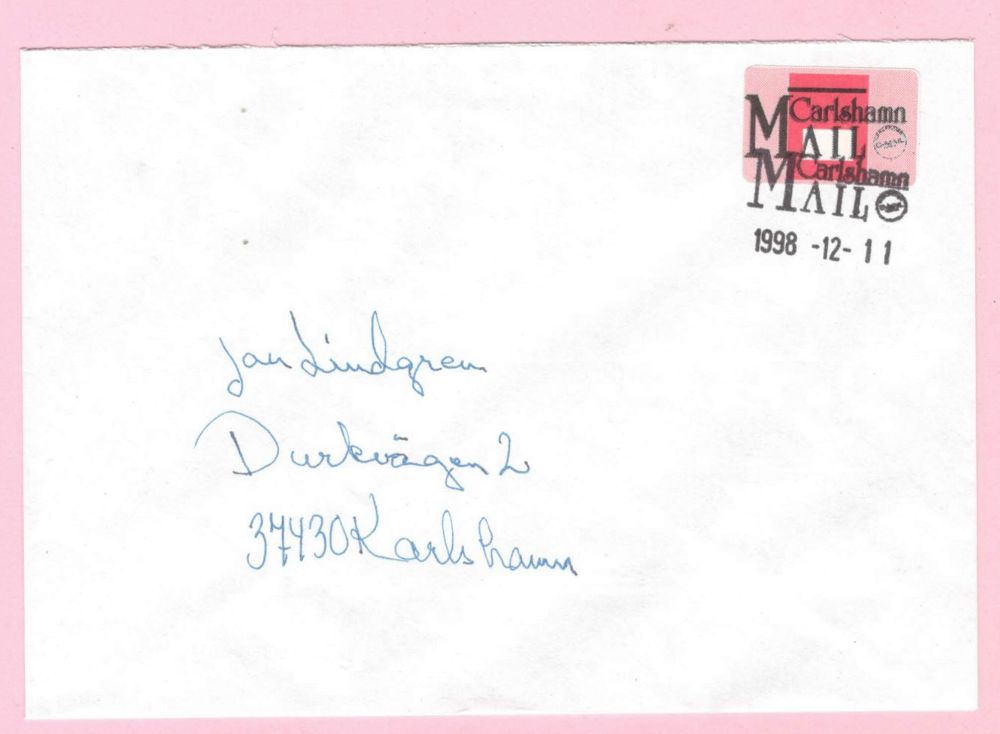 Carlshamn
MAIL
C-MAIL
Carlshamn
MAIL
1998 -12- 11
Jan Lindgren
Durkvägen 2
37430 Karlshamn